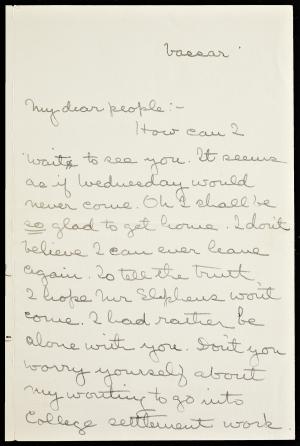 Vassar
My dear people:-
How can I
wait to see you. It seems
as if Wednesday would
never come. Oh I shall be
so glad to get home. I don't
believe I can ever leave
again. To tell the truth,
I hope Mr Stephens won't
come. I had rather be
alone with you. Don't you
worry yourself about
my wanting to go into
College settlement work